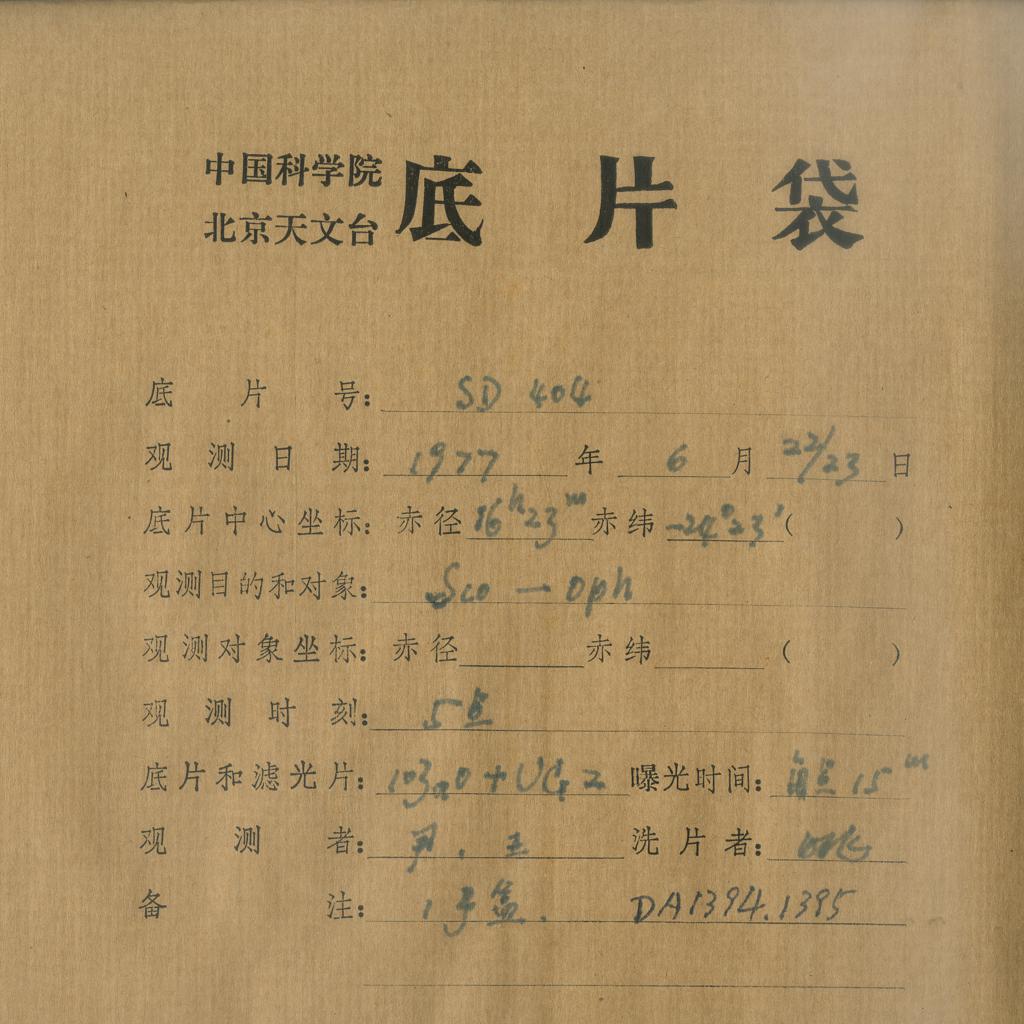 中国科学院
北京天文台
底片袋
底片号: SD 404
观测日期: 1977年6月22/23日
底片中心坐标: 赤径16h23m赤纬-24°23′( )
观测目的和对象: Sco — oph
观测对象坐标: 赤径 赤纬 ( )
观测时刻: 5点
底片和滤光片: 103aO+UG2 曝光时间: 每点15m
观测者: 尹.王 洗片者:
备注: 1号盒. DA1394.1395